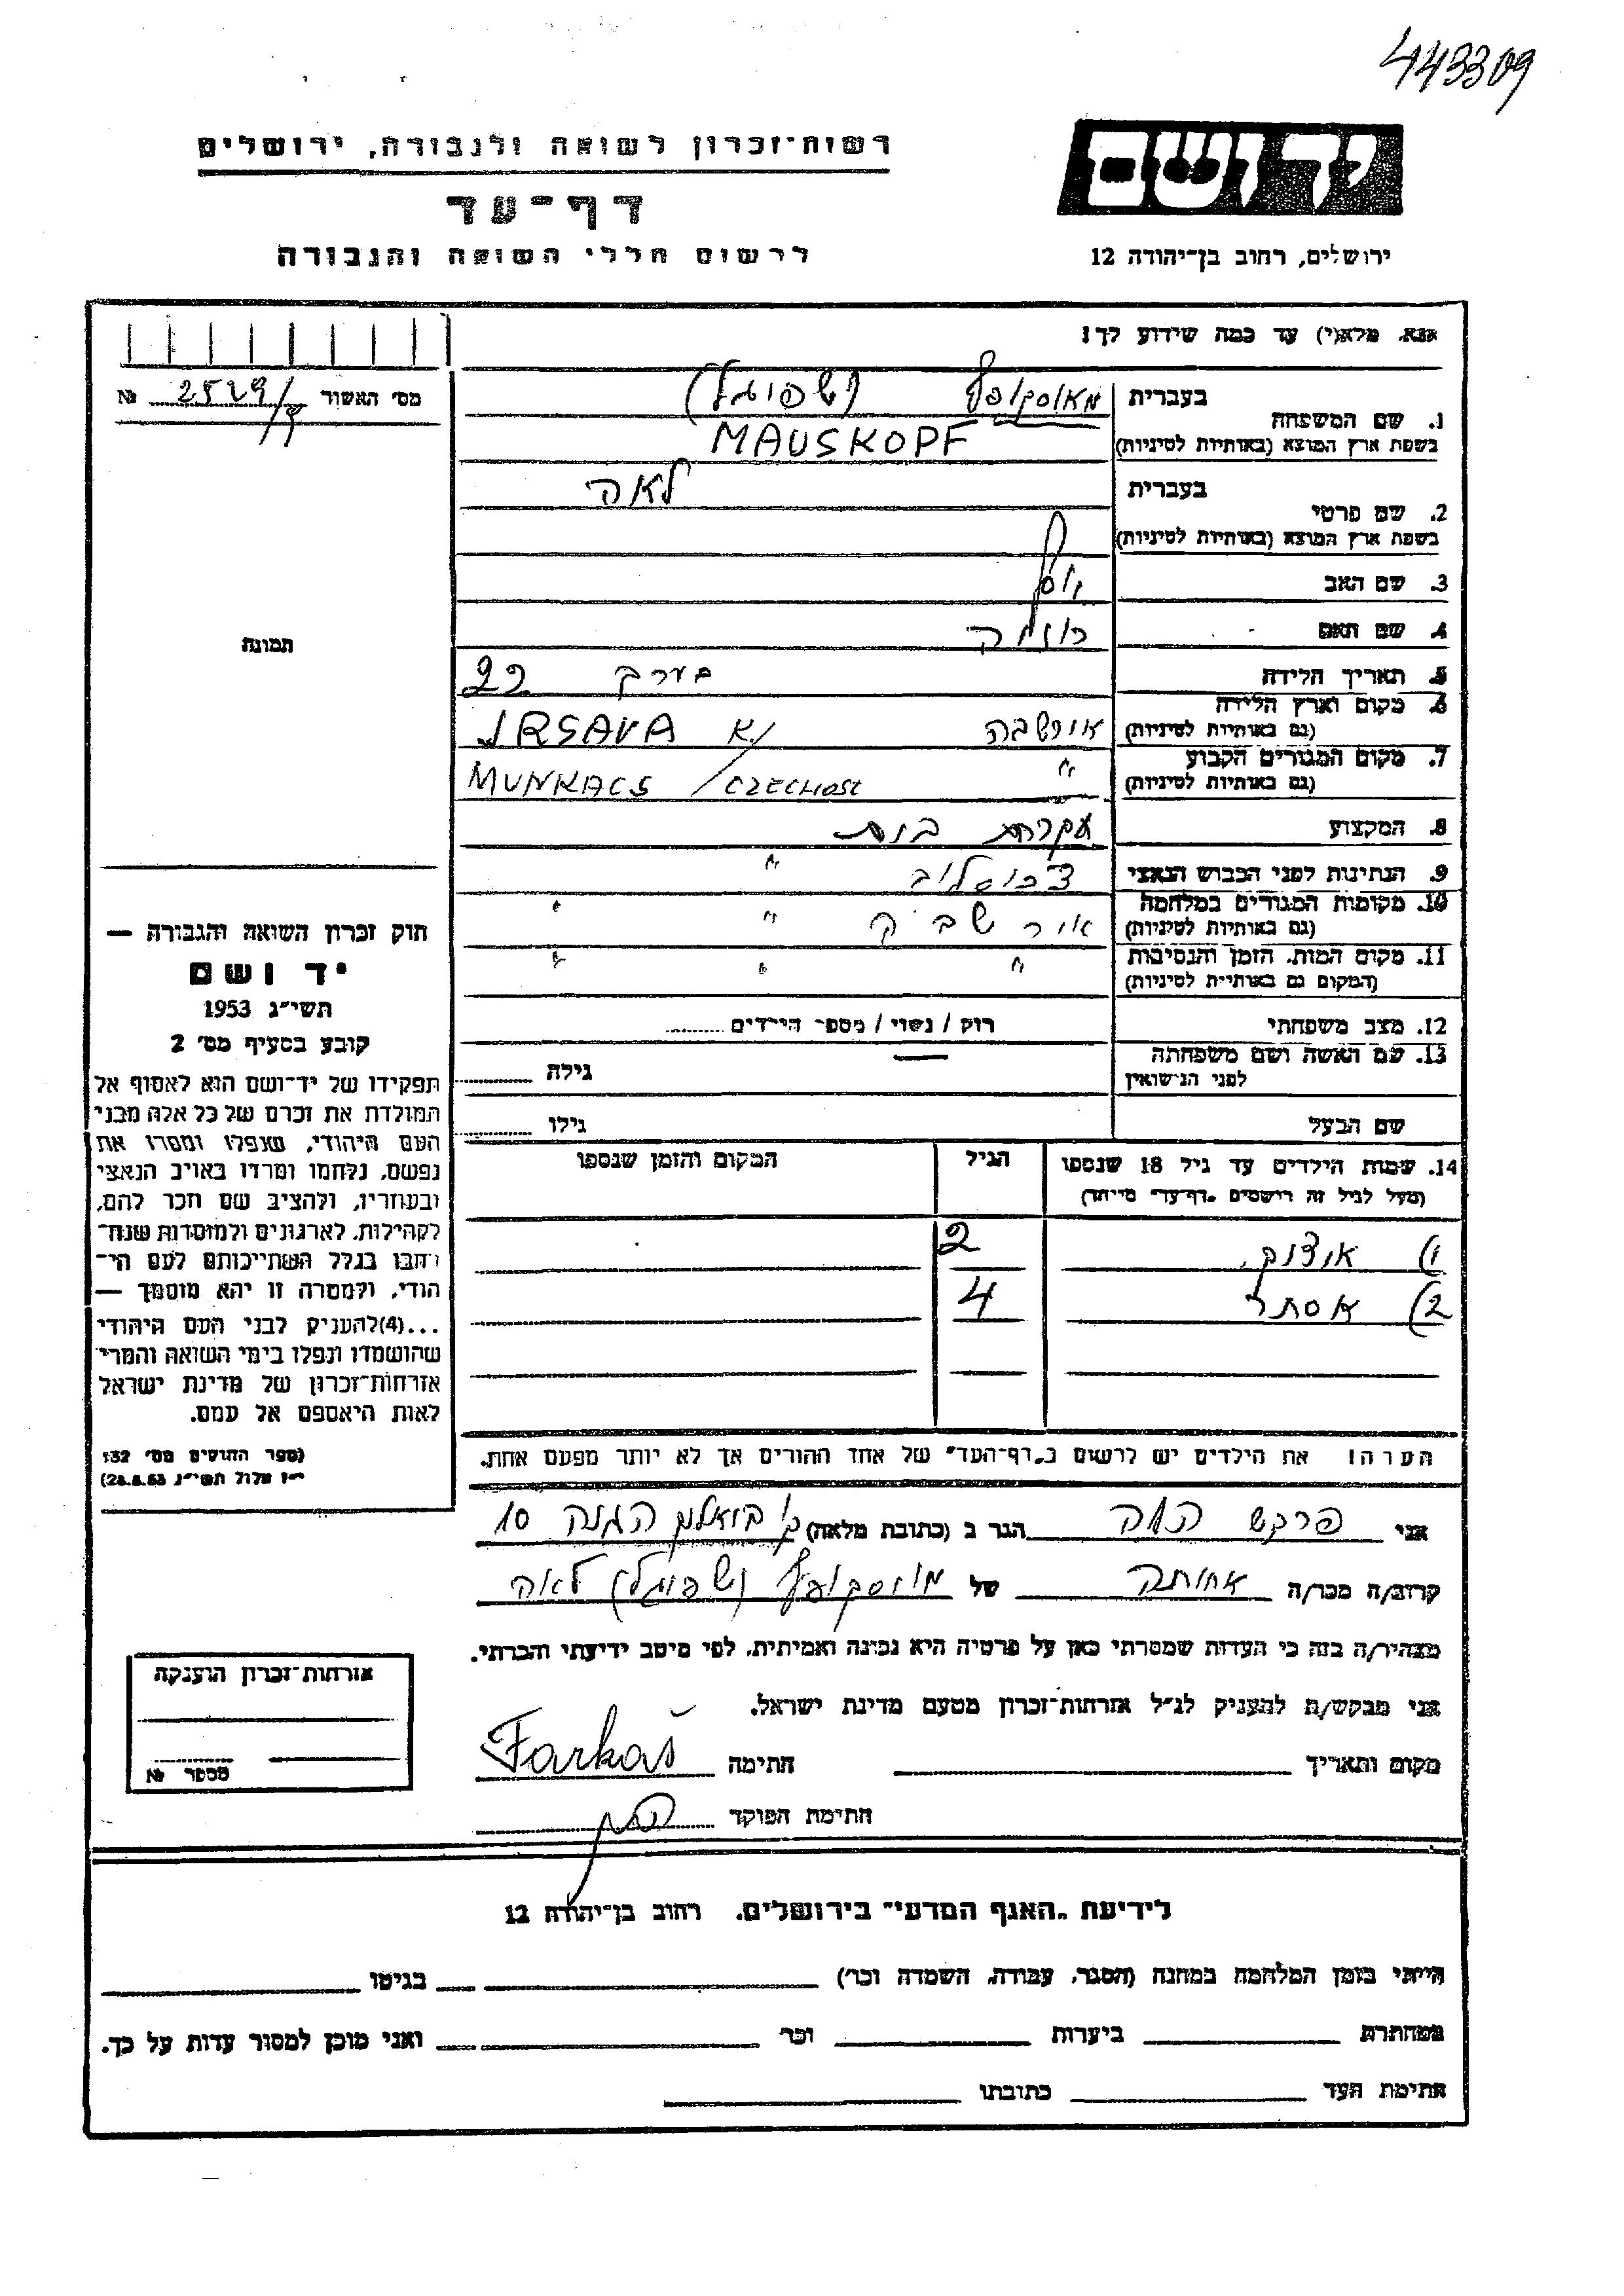 443309
יד ושם
ירושלים, רחוב בן־יהודה 12
רשות־זכרון לשואה ולגבורה, ירושלים
דף־עד
לרשום חללי השואה והגבורה
אנא, מלא(י) עד כמה שידוע לך!
מס׳ האשור 2529/ №
בעברית מאוסקופף (שפיגל)
1. שם המשפחה
בשפת ארץ המוצא (באותיות לטיניות) MAUSKOPF
בעברית לאה
2. שם פרטי
בשפת ארץ המוצא (באותיות לטיניות)
3. שם האב יוסף
4. שם האם
5. תאריך הלידה בערך 22
6. מקום וארץ הלידה אורשבה IRSAVA K/
(גם באותיות לטיניות)
7. מקום המגורים הקבוע " MUNKACS / CZECHOSL
(גם באותיות לטיניות)
8. המקצוע עקרת בית
9. הנתינות לפני הכבוש הנאצי צ׳כוסלוב "
10. מקומות המגורים במלחמה " "
(גם באותיות לטיניות)
11. מקום המות, הזמן והנסיבות " " "
(המקום גם באותיות לטיניות)
12. מצב משפחתי רוק / נשוי / מספר הילדים
13. שם האשה ושם משפחתה
לפני הנישואין גילה
שם הבעל גילו
14. שמות הילדים עד גיל 18 שנספו הגיל המקום והזמן שנספו
(מעל לגיל זה רושמים "דף־עד" מיוחד)
1) 2
2) אסתר 4
הערה! את הילדים יש לרשום ב"דף־העד" של אחד ההורים אך לא יותר מפעם אחת.
תמונה
חוק זכרון השואה והגבורה —
יד ושם
תשי״ג 1953
קובע בסעיף מס׳ 2
תפקידו של יד־ושם הוא לאסוף אל
המולדת את זכרם של כל אלה מבני
העם היהודי, שנפלו ומסרו את
נפשם, נלחמו ומרדו באויב הנאצי
ובעוזריו, ולהציב שם וזכר להם,
לקהילות, לארגונים ולמוסדות שנח־
רבו בגלל השתייכותם לעם הי־
הודי, ולמטרה זו יהא מוסמך —
...(4) להעניק לבני העם היהודי
שהושמדו ונפלו בימי השואה והמרי
אזרחות־זכרון של מדינת ישראל
לאות היאספם אל עמם.
(ספר החוקים מס׳ 132
י״ז אלול תשי״ג 28.8.53)
אני פרקש הגר ב (כתובת מלאה) ק׳ ביאליק הגנה 10
קרוב/ה מכר/ה אחותה של מאוסקופף (שפיגל) לאה
מצהיר/ה בזה כי העדות שמסרתי כאן על פרטיה היא נכונה ואמיתית, לפי מיטב ידיעתי והכרתי.
אני מבקש/ת להעניק לנ״ל אזרחות־זכרון מטעם מדינת ישראל.
מקום ותאריך חתימה Farkaš
חתימת הפוקד
אזרחות־זכרון הוענקה
מספר №
לידיעת "האגף המדעי" בירושלים, רחוב בן־יהודה 12
הייתי בזמן המלחמה במחנה (הסגר, עבודה, השמדה וכו׳) בגיטו
במחתרת ביערות וכו׳ ואני מוכן למסור עדות על כך.
חתימת העד כתובתו